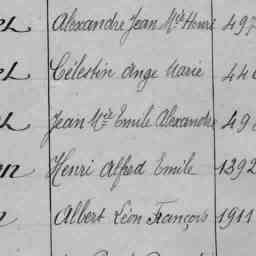 Alexandre Jean Mie Henri 497
Célestin Ange Marie 44
Jean Mie Emile Alexandre 49
Henri Alfred Emile 1392
Albert Léon François 1911